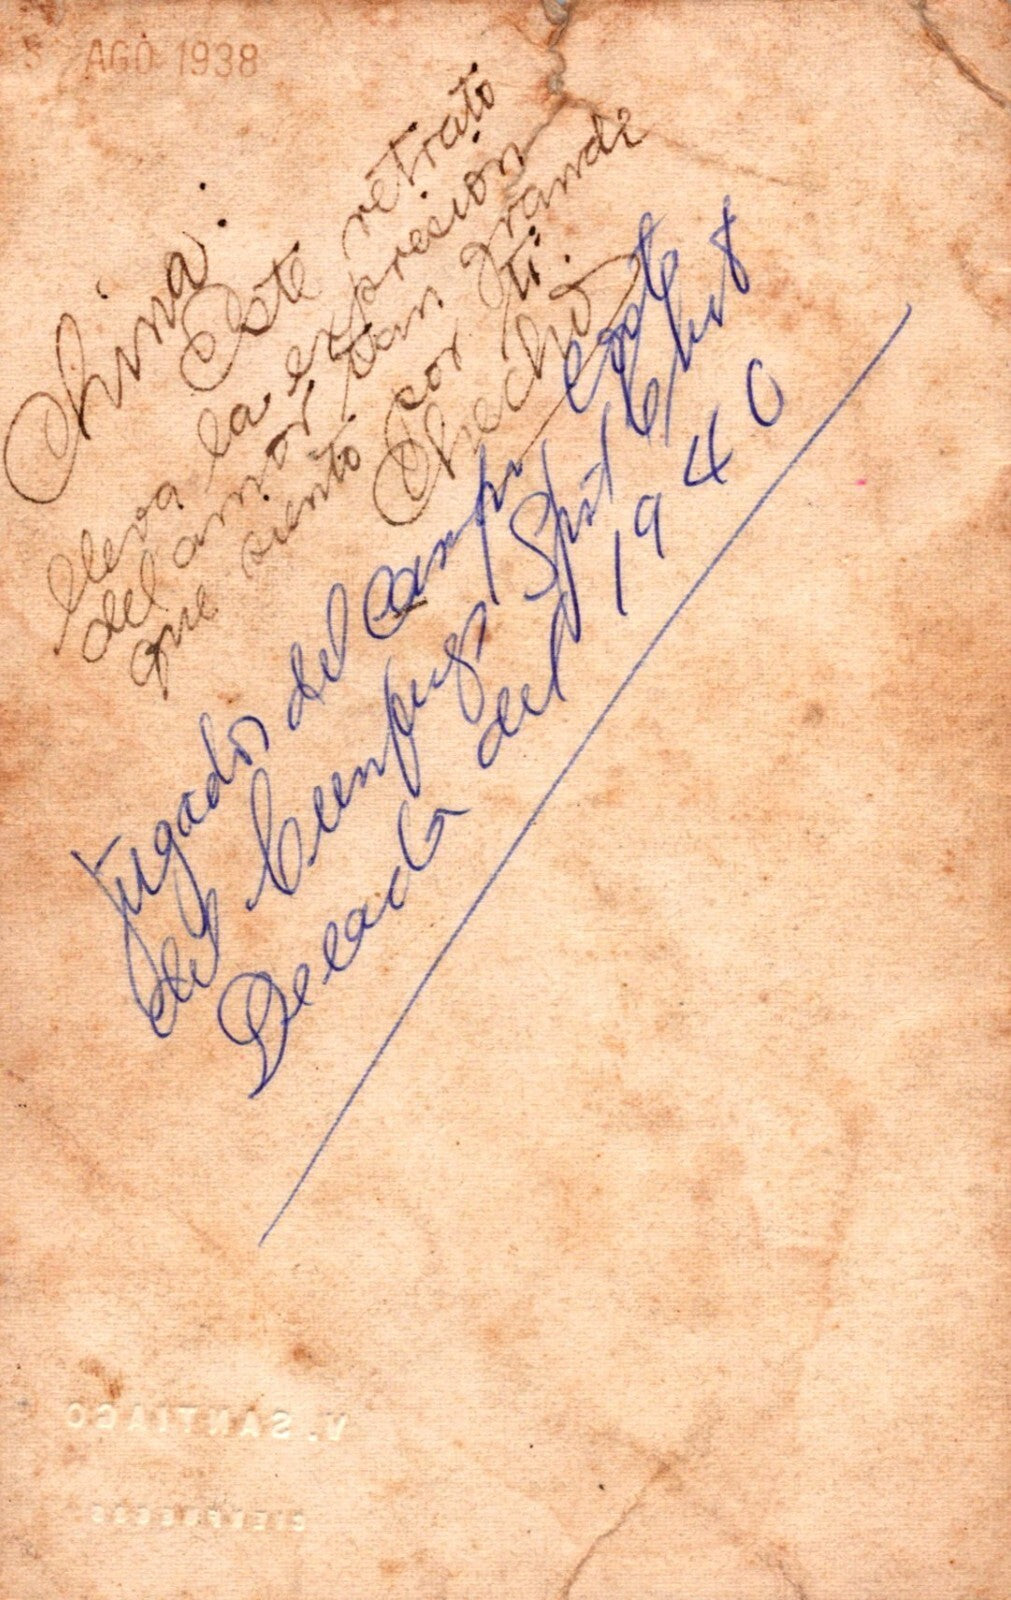 5 AGO 1938
China:
Este retrato
lleva la expresion
del amor tan grande
que siento por ti.
Checho
jugador del campo corto
del Cienfuegos Sport Club
Decada del 1940
V. SANTIAGO
CIENFUEGOS